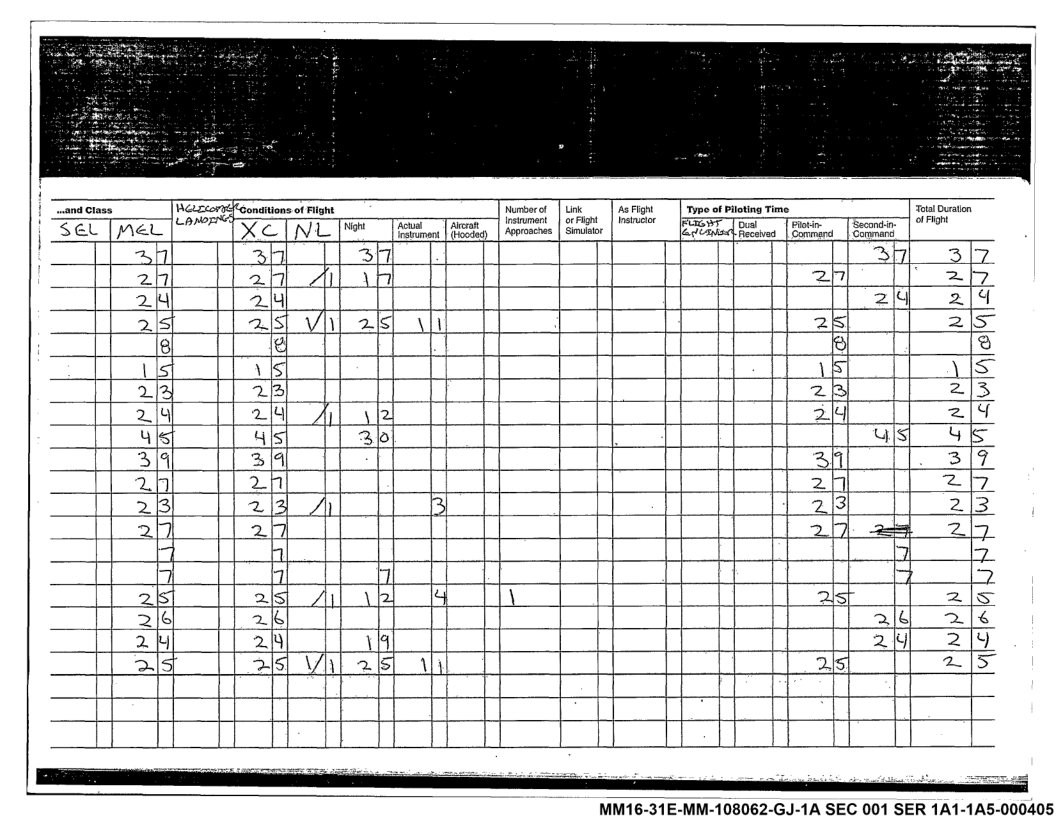 ...and Class HELICOPTER LANDINGS Conditions of Flight Number of Instrument Approaches Link or Flight Simulator As Flight Instructor Type of Piloting Time Total Duration of Flight
SEL MEL XC NL Night Actual Instrument Aircraft (Hooded) FLIGHT ENGINEER Dual Received Pilot-in-Command Second-in-Command
3 7 3 7 3 7 3 7 3 7
2 7 2 7 /1 1 7 2 7 2 7
2 4 2 4 2 4 2 4
2 5 2 5 1/1 2 5 1 1 2 5 2 5
8 8 8 8
1 5 1 5 1 5 1 5
2 3 2 3 2 3 2 3
2 4 2 4 /1 1 2 2 4 2 4
4 5 4 5 3 0 4 5 4 5
3 9 3 9 3 9 3 9
2 7 2 7 2 7 2 7
2 3 2 3 /1 3 2 3 2 3
2 7 2 7 2 7 2 7 2 7
7 7 7 7
7 7 7 7 7
2 5 2 5 /1 1 2 4 1 2 5 2 5
2 6 2 6 2 6 2 6
2 4 2 4 1 9 2 4 2 4
2 5 2 5 1/1 2 5 1 1 2 5 2 5
MM16-31E-MM-108062-GJ-1A SEC 001 SER 1A1-1A5-000405